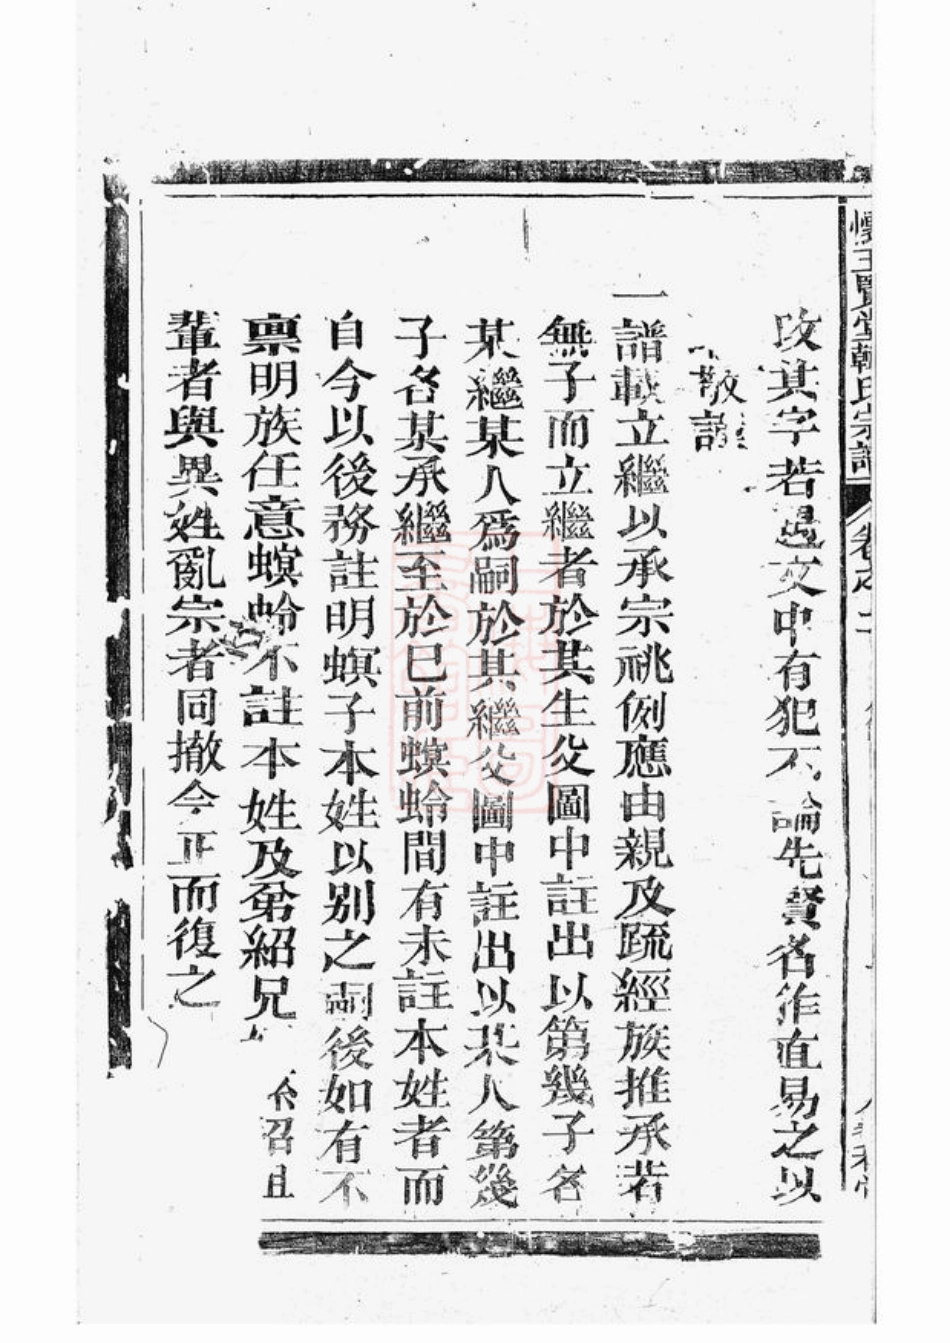 韓氏宗譜
改其字若過文中有犯不論先賢名作直易之以
散譜
一譜載立繼以承宗祧例應由親及疏經族推承若
無子而立繼者於其生父圖中註出以第幾子名
某繼某人為嗣於其繼父圖中註出以某人第幾
子名某承繼至於已前螟蛉間有未註本姓者而
自今以後務註明螟子本姓以別之嗣後如有不
禀明族任意螟蛉不註本姓及弟紹兄 紹且
輩者與異姓亂宗者同撤今正而復之